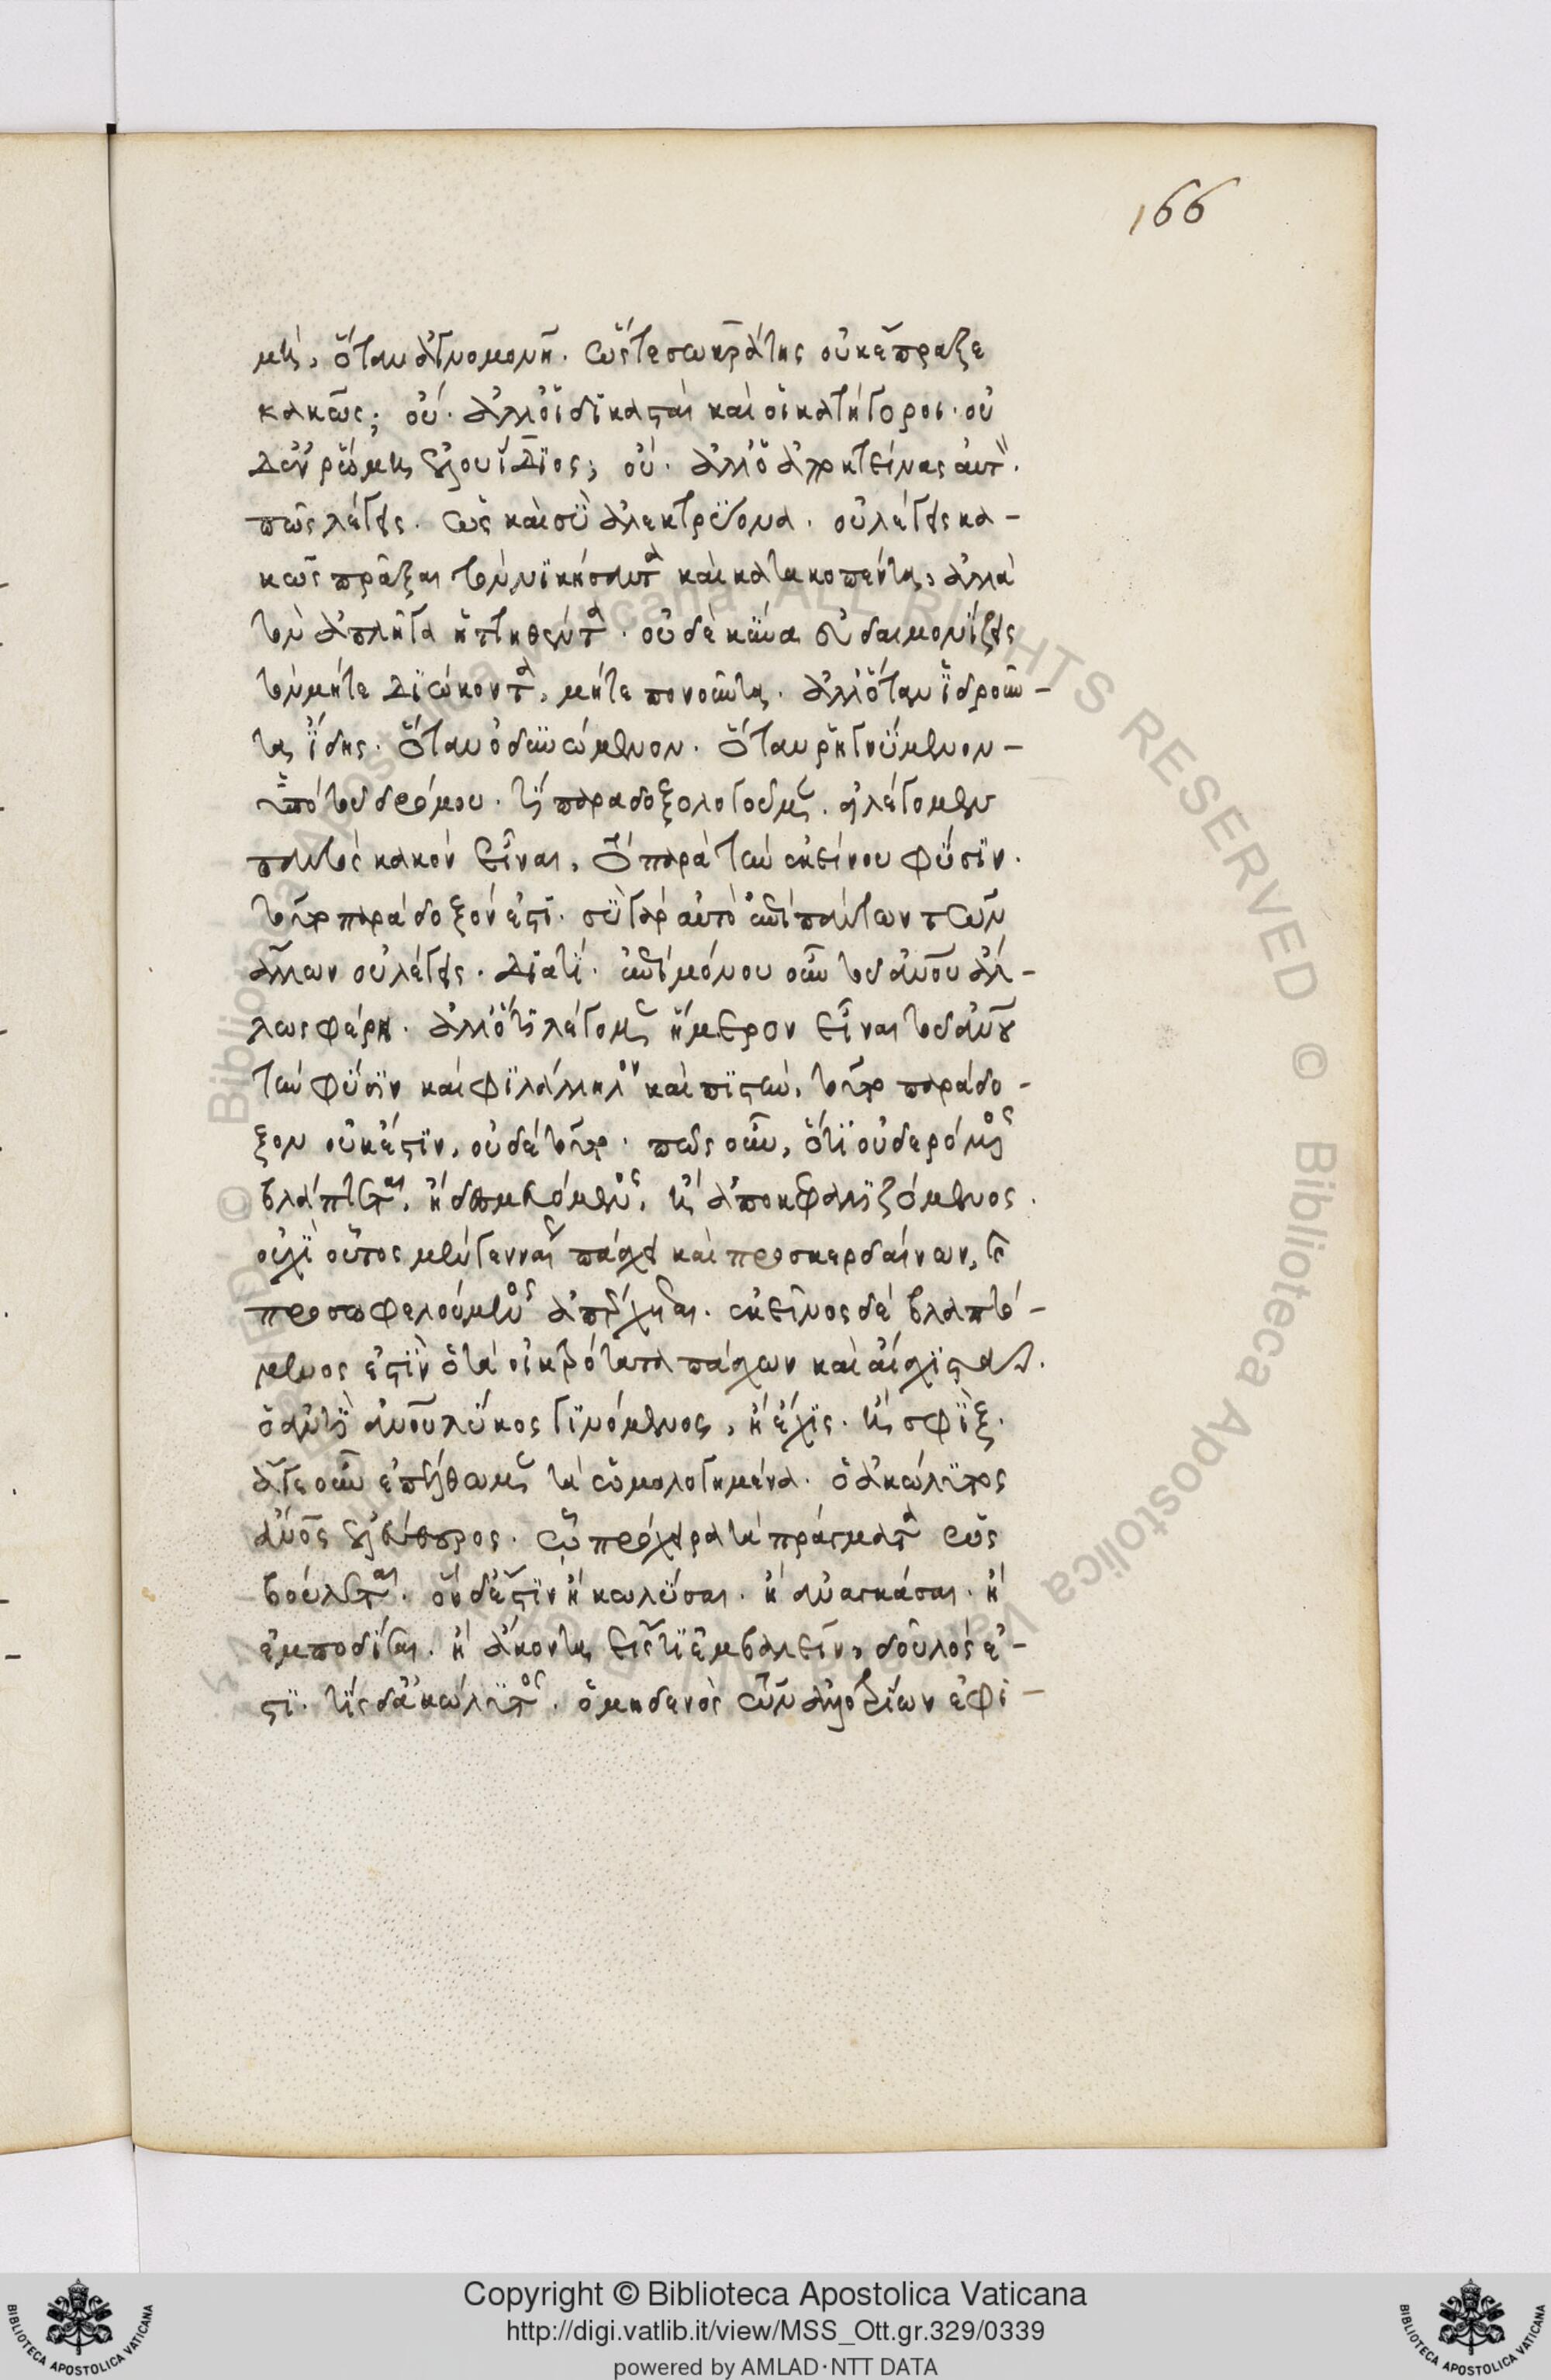 166
μή, ὅταν ἀγνομονῆ. ὥστε σωκράτης οὐκ ἔπραξε
κακῶς; οὔ. ἀλλ' οἱ δικασταὶ καὶ οἱ κατήγοροι. οὐ
δ' ἐν ῥώμη ἐλουίδιος; οὔ. ἀλλ' ὁ ἀποκτείνας αὐτόν.
πῶς λέγεις. ὡς καὶ σὺ ἀλεκτρυόνα. οὐ λέγεις κα-
κῶς πρᾶξαι τὸν νικήσαντα καὶ κατακοπέντα, ἀλλὰ
τὸν ἀπλῆγα ἡττηθέντα. οὐδὲ κύνα εὐδαιμονίζεις
τὸν μήτε διώκοντα, μήτε πονοῦντα. ἀλλ' ὅταν ἱδροῦν-
τα ἴδης. ὅταν ὀδυνώμενον. ὅταν ῥηγνύμενον-
ὑπὸ τοῦ δρόμου. τί παραδοξολογοῦμεν. εἰ λέγομεν
παντὸς κακὸν εἶναι, τὸ παρὰ τὴν ἐκείνου φύσιν.
τοῦτο παράδοξόν ἐστι. σὺ γὰρ αὐτὸ ἐπὶ πάντων τῶν
ἄλλων οὐ λέγεις. διατί. ἐπὶ μόνου οὖν τοῦ ἀνου ἄλ-
λως φέρη. ἀλλ' ὅτι λέγομεν ἥμερον εἶναι τοῦ ἀνου
τὴν φύσιν καὶ φιλάλληλον καὶ πιστήν, τοῦτο παράδο-
ξον οὐκ ἔστιν, οὐδὲ τοῦτο. πῶς οὖν, ὅτι οὐ δερόμενος
βλάπτεται, ἢ δεσμευόμενος, ἢ ἀποκεφαλιζόμενος.
οὐχὶ οὗτος μὲν γενναίως πάσχει καὶ προσκερδαίνων, καὶ
προσωφελούμενος ἀπέρχεται. ἐκεῖνος δὲ βλαπτό-
μενος ἐστὶν ὁ τὰ οἰκτρότατα πάσχων καὶ αἴσχιστα.
ὁ ἀντὶ ἀνου λύκος γινόμενος, ἢ ἔχις. ἢ σφίξ.
ἄγε οὖν ἐπέλθωμεν τὰ ὡμολογημένα. ὁ ἀκώλυτος
ἀνος ἐλεύθερος. ὧ πρόχειρα τὰ πράγματα ὡς
βούλεται. ὃν δ' ἔστιν ἢ κωλῦσαι. ἢ ἀναγκάσαι. ἢ
ἐμποδίσαι. ἢ ἄκοντα εἴς τι ἐμβαλεῖν, δοῦλός ἐ-
στι. τίς δ' ἀκώλυτος. ὁ μηδενὸς τῶν ἀλλοτρίων ἐφι-
© Biblioteca Apostolica Vaticana ALL RIGHTS RESERVED © Biblioteca Apostolica Vaticana
Copyright © Biblioteca Apostolica Vaticana
http://digi.vatlib.it/view/MSS_Ott.gr.329/0339
powered by AMLAD·NTT DATA
BIBLIOTECA APOSTOLICA VATICANA
BIBLIOTECA APOSTOLICA VATICANA